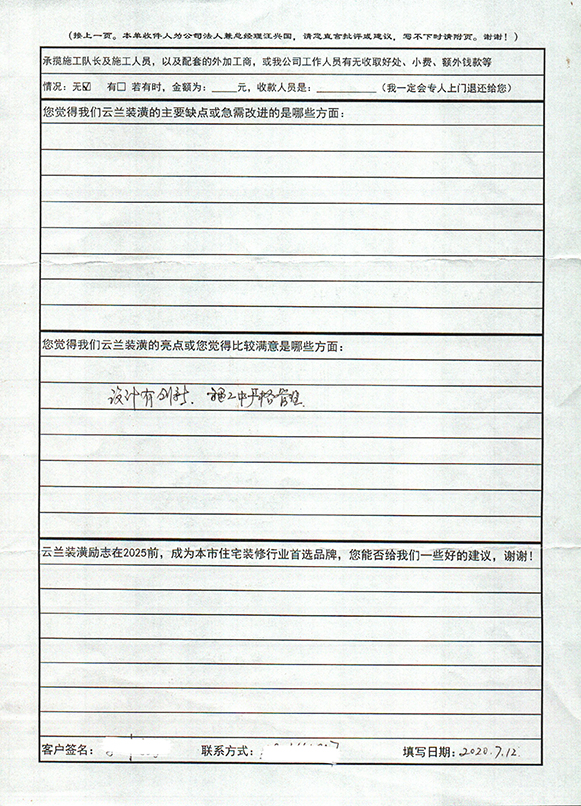 (接上一页。本单收件人为公司法人兼总经理汪兴国，请您直言批评或建议，写不下时请附页。谢谢！)
承揽施工队长及施工人员，以及配套的外加工商，或我公司工作人员有无收取好处、小费、额外钱款等
情况：无☑ 有□ 若有时，金额为：____元，收款人员是：__________（我一定会专人上门退还给您）
您觉得我们云兰装潢的主要缺点或急需改进的是哪些方面：
您觉得我们云兰装潢的亮点或您觉得比较满意是哪些方面：
设计有创新、施工中严格管理.
云兰装潢励志在2025前，成为本市住宅装修行业首选品牌，您能否给我们一些好的建议，谢谢！
客户签名： 联系方式： 填写日期：2020.7.12.